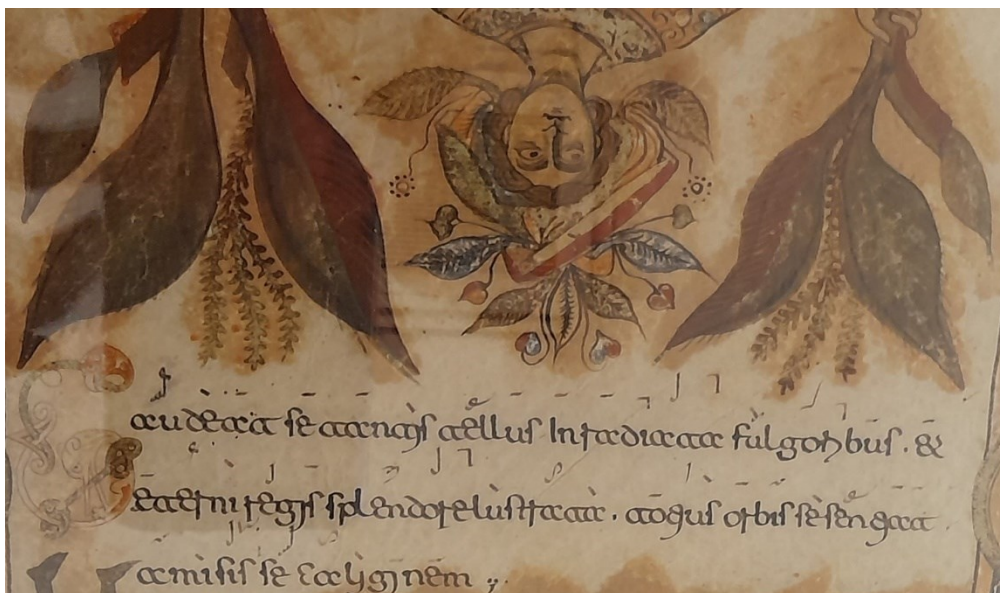 Gaudeat se tantis tellus Inradiata fulgoribus . &
eterni regis splendore lustrata . totius orbis se sentiat
amisisse caliginem ;